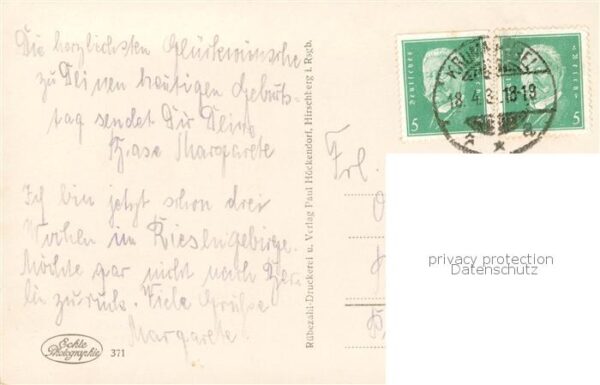 Die herzlichsten Glückwünsche
zu Deinem heutigen Geburts-
tag sendet Dir Deine
Base Margarete
Ich bin jetzt schon drei
Wochen im Riesengebirge.
Möchte gar nicht nach Ber-
lin zurück. Viele Grüße
Margarete.
Echte
Photographie
371
Rübezahl-Druckerei u. Verlag Paul Höckendorf, Hirschberg i. Rsgb.
Frl.
Deutsches Reich
5
Deutsches Reich
5
18-19
privacy protection
Datenschutz